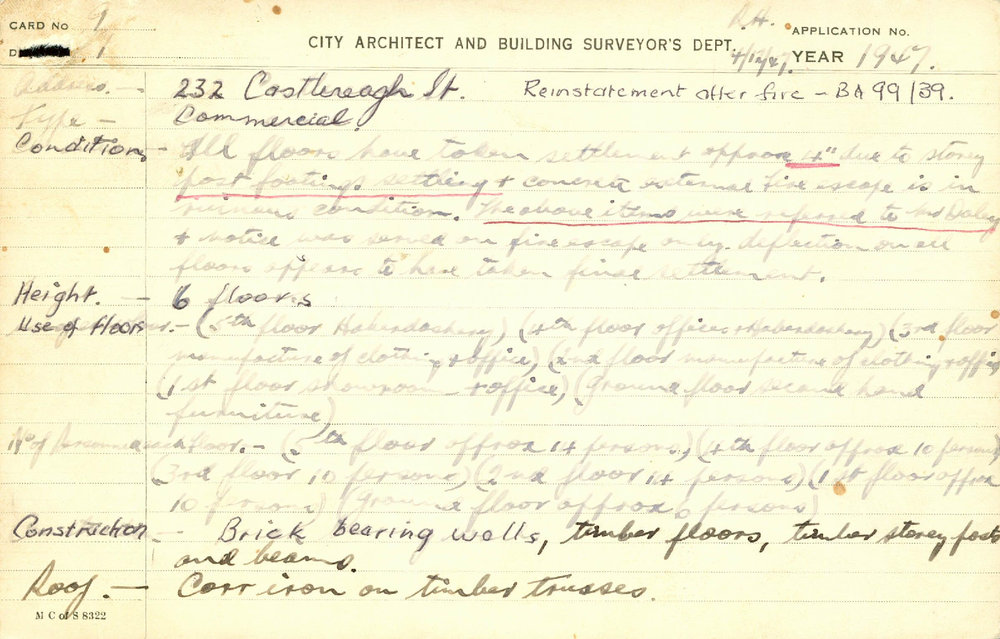 CARD No 1
D 1
CITY ARCHITECT AND BUILDING SURVEYOR'S DEPT.
R.H.
4/12/47.
APPLICATION No.
YEAR 1947.
Address. — 232 Castlereagh St. Reinstatement after fire — BA 99/39.
Type — Commercial.
Condition — All floors have taken settlement approx 4" due to storey
post footings settling + concrete external fire escape is in
ruinous condition. The above items were referred to Mr Daley
+ notice was served on fire escape only. deflection on all
floors appears to have taken final settlement.
Height. — 6 floors
Use of floors — (5th floor Haberdashery) (4th floor offices + Haberdashery) (3rd floor
manufacture of clothing + office) (2nd floor manufacture of clothing + office
(1st floor showroom + office) (Ground floor second hand
furniture)
No of Persons each floor. — (5th floor approx 14 persons) (4th floor approx 10 persons)
(3rd floor 10 persons) (2nd floor 14 persons) (1st floor approx
10 persons) (Ground floor approx 6 persons)
Construction — Brick bearing walls, timber floors, timber storey posts
and beams.
Roof. — Corr iron on timber trusses.
M C of S 8322